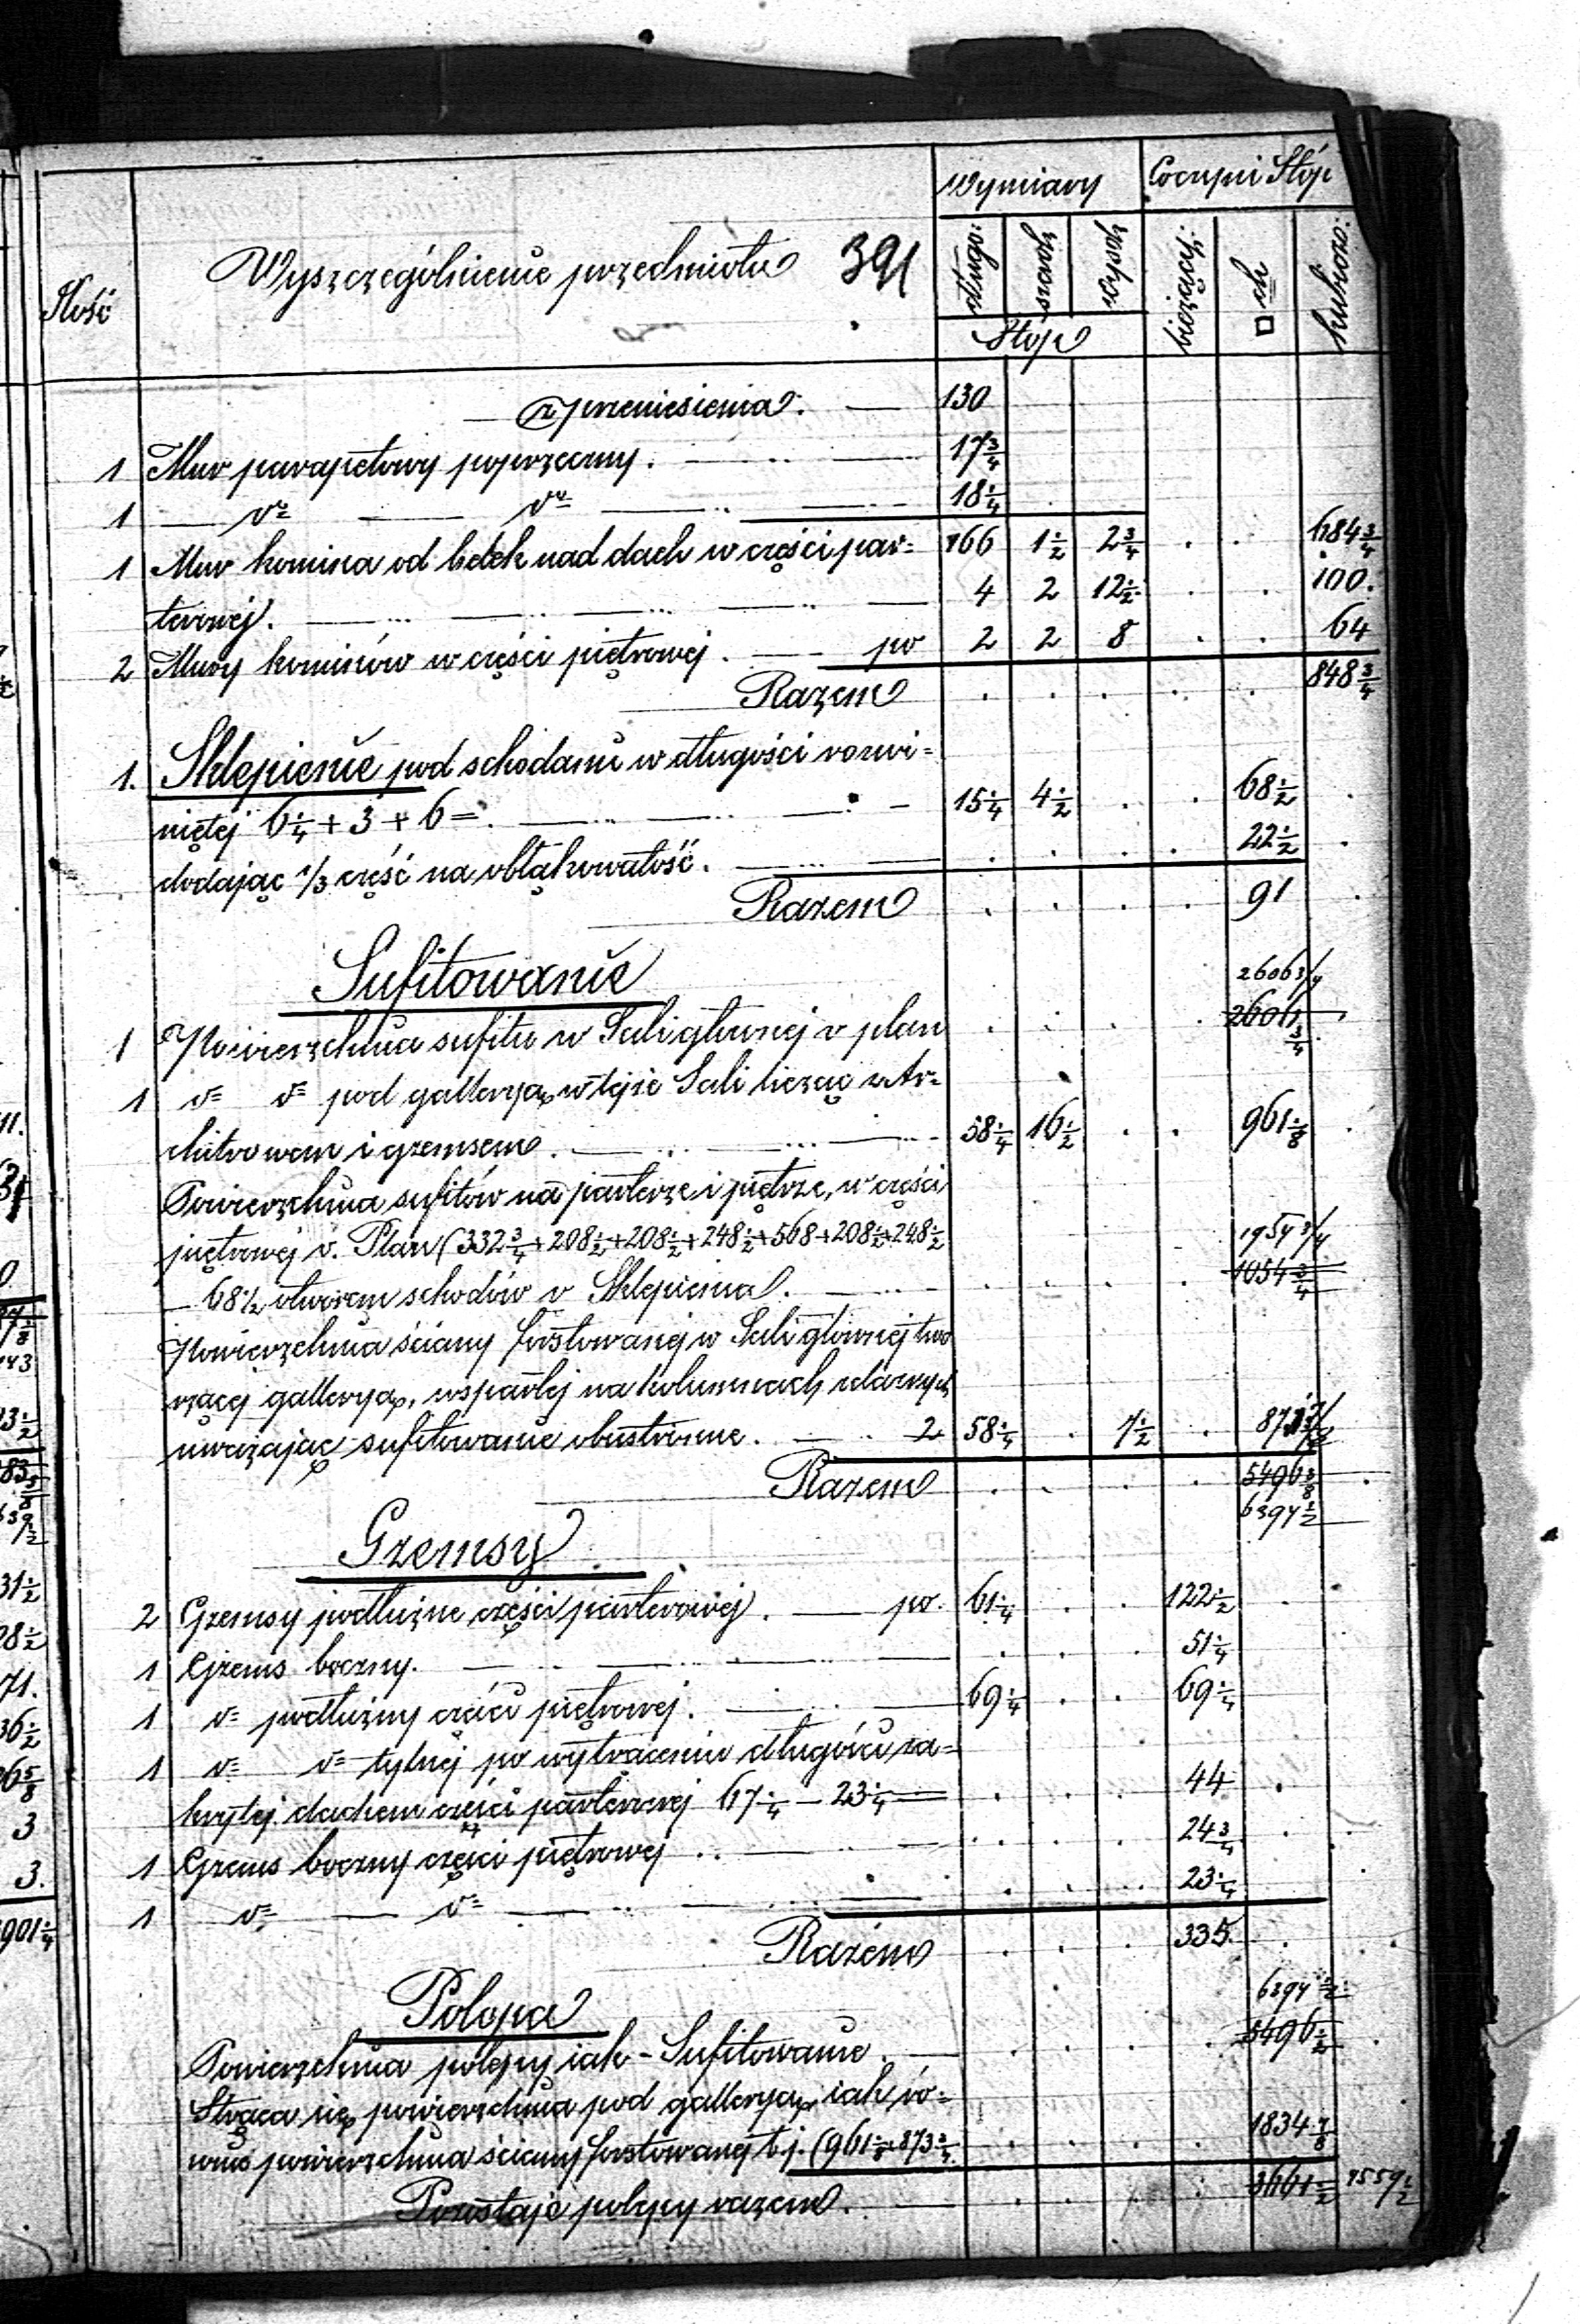 Wymiary Czyni Stóp
Ilość Wyszczególnienie przedmiotu 391 długo: szerok wysok bieżącej: □ch kubiczn:
Stóp
z przeniesienia. 130
1 Mur parapetowy poprzeczny. 17 3/4
1 — d° — d° — 18 1/4
166 1 1/2 2 3/4 684 3/4
1 Mur komina od belek nad dach w części par=
terowej. 4 2 12 1/2 100.
2 Mury kominów w części piętrowej. po 2 2 8 64
Razem 848 3/4
1. Sklepienie pod schodami w długości rozwi=
niętej 6 1/4 + 3 + 6 = 15 1/4 4 1/2 68 1/2
dodając 1/3 część na obłąkowatość. 22 1/2
Razem 91
Sufitowanie
2606 3/4
1 Powierzchnia sufitu w Sali głównej v plan 2606 3/4
1 d° d° pod galleryą w tejże Sali licząc z Ar=
chitrawem i gzemsem. 58 1/4 16 1/2 961 1/8
Powierzchnia sufitów na parterze i piętrze, w części
piętrowej v. Plan (332 3/4 + 208 1/2 + 208 1/2 + 248 1/2 + 568 + 208 1/2 + 248 1/2 1954 3/4
— 68 1/2 otworem schodów v Sklepienia. 1054 3/4
Powierzchnia ściany forstowanej w Sali głównej two
rzącej galleryą, wspartej na kolumnach
uważając sufitowanie obustronne. 2 58 1/4 7 1/2 873
Razem 5496 3/8
6394 1/2
Gzemsy
2 Gzemsy podłużne części parterowej. po. 61 1/4 122 1/2
1 Gzems boczny. 51 1/4
1 d° podłużny części piętrowej. 69 1/4 69 1/4
1 d° d° tylnej po wytrąceniu długości za=
krytej dachem części parterowej 67 1/4 — 23 1/4 = 44
1 Gzems boczny części piętrowej 24 3/4
1 d° — d° — 23 1/4
Razem 335.
Polepa
6394 1/2
Powierzchnia polepy jak Sufitowanie. 5496 1/2
Strąca się powierzchnia pod galleryą jak ró=
wnie powierzchnia ściany forstowanej t.j. (961 1/8 + 873 3/4 1834 7/8
Pozostaje polepy razem. 3661 1/2 4559 1/2